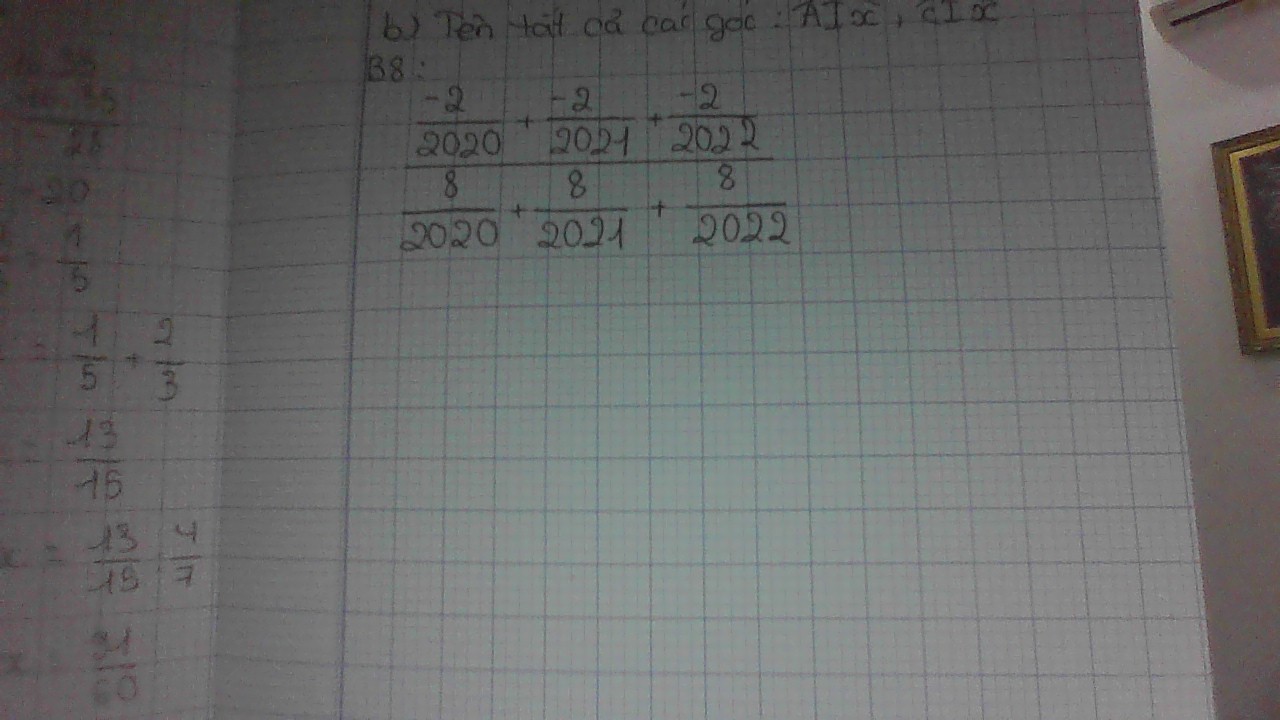 b) Tên tất cả các góc: AIx, CIx
B8:
-2/2020 + -2/2021 + -2/2022
8/2020 + 8/2021 + 8/2022
28
20
1/5
= 1/5 + 2/3
= 13/15
x = 13/15 : 4/7
x =